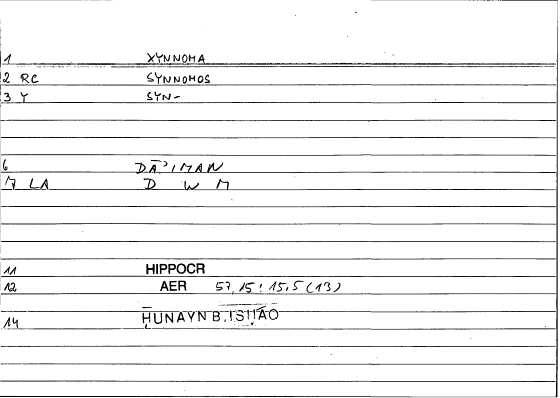 1 XYNNOMA
2 RC SYNNOMOS
3 Y SYN-
6 DĀʾIMAN
7 LA D W M
11 HIPPOCR
12 AER 57,15 : 15,5 (13)
14 ḤUNAYN B. ISḤĀQ